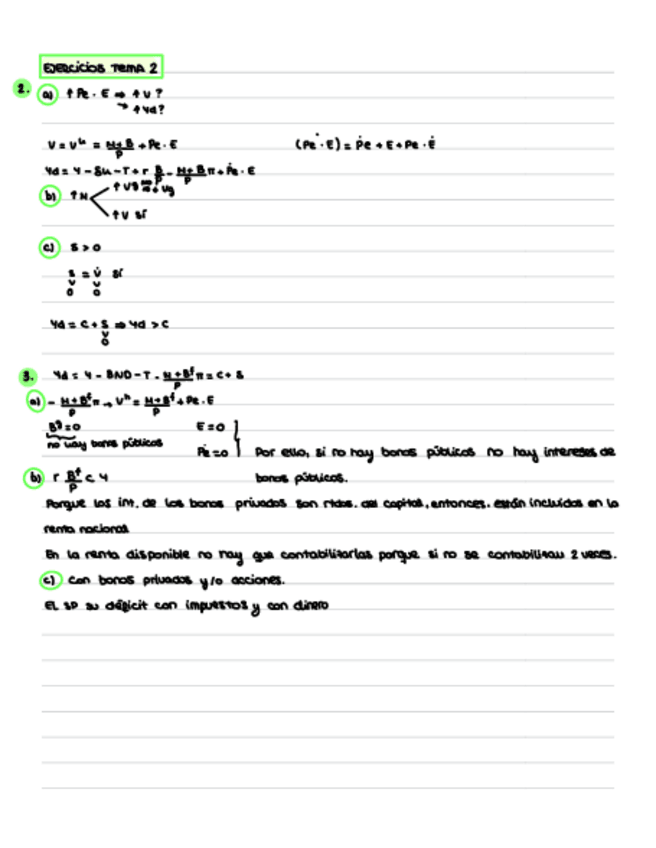 EJERCICIOS TEMA 2
2. a) ↑ Pe · E ⇒ ↑ V ?
→ ↑ Yd ?
V = Vʰ = (M+B)/P + Pe · E (Pe · E)˙ = Ṗe · E + Pe · Ė
Yd = Y - δK - T + r B/P - (M+B)/P π + Ṗe · E
b) ↑ M
↑ V sí
c) S > 0
S = V̇ sí
v v
0 0
Yd = C + S ⇒ Yd > C
v
0
3. Yd = Y - BND - T - (M+Bᶠ)/P π = C + S
a) - (M+Bᶠ)/P π → Vʰ = (M+Bᶠ)/P + Pe · E
Bᵍ = 0 E = 0
no hay bonos públicos
Ṗe = 0 Por ello, si no hay bonos públicos no hay intereses de
bonos públicos.
b) r Bᶠ/P c Y
Porque los int. de los bonos privados son rtdos. del capital, entonces, están incluidos en la
renta nacional
En la renta disponible no hay que contabilitarlas porque si no se contabilitau 2 veces.
c) con bonos privados y/o acciones.
EL SP su déficit con impuestos y con dinero